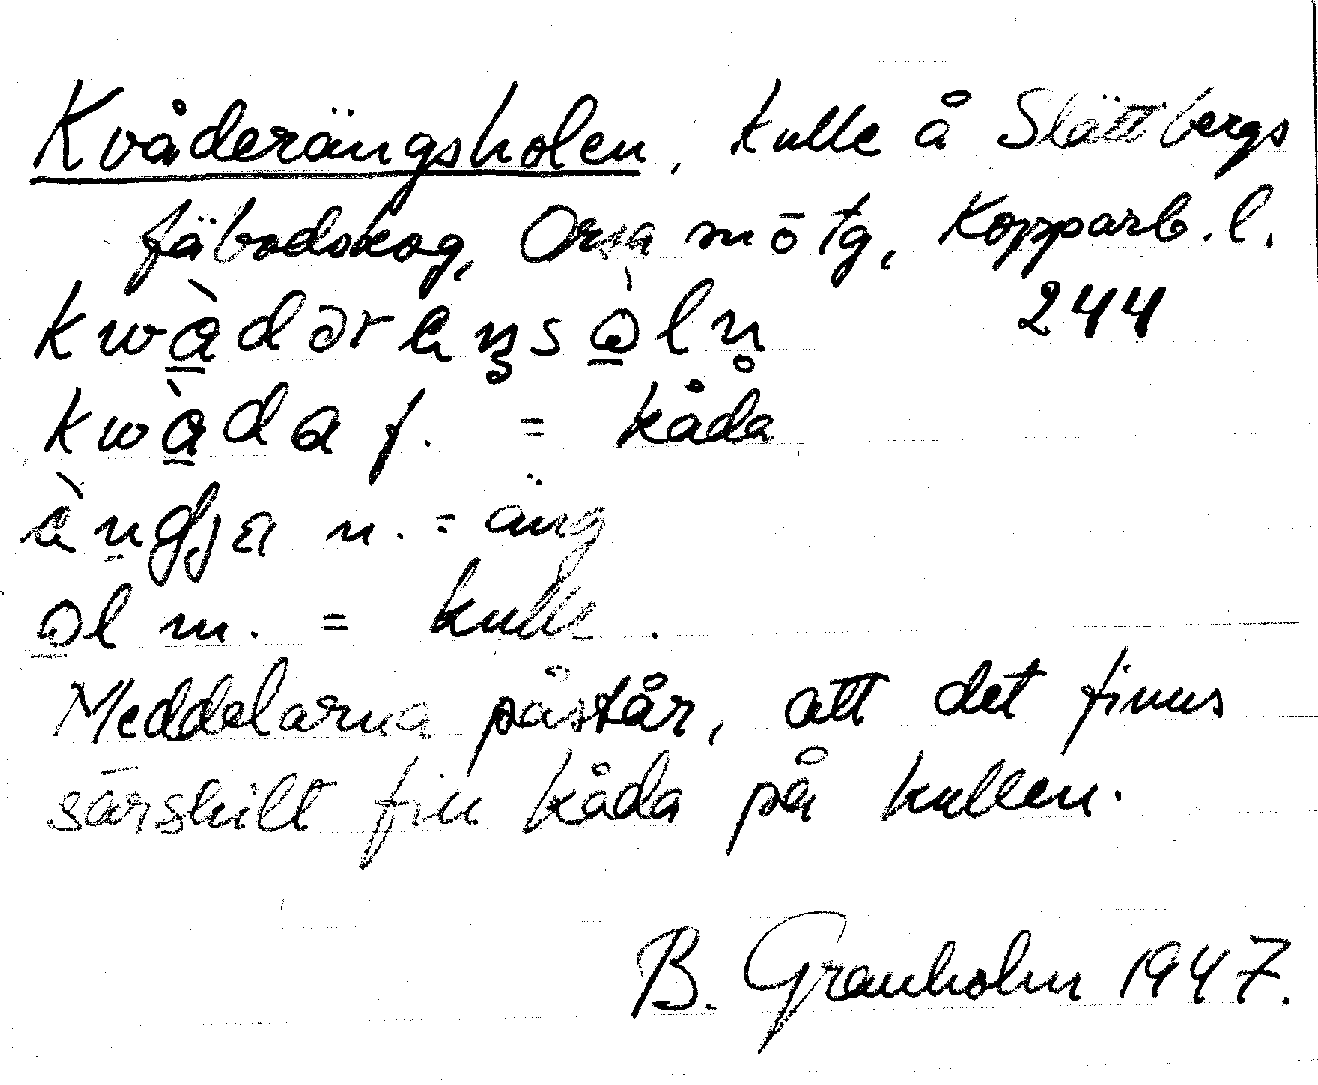 Kvåderängsholen, kulle å Slättbergs
fäbodskog, Orsa mötg, Kopparb. l.
244
kwàdərenŋsòln
kwàda f. = kåda
èŋgja n. = äng
ol m. = kulle.
Meddelarna påstår, att det finns
särskilt fin kåda på kullen.
B. Granholm 1947.